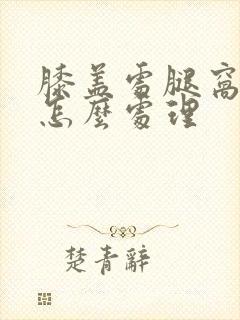 膝盖處腿窩
怎麼處理
楚青辭